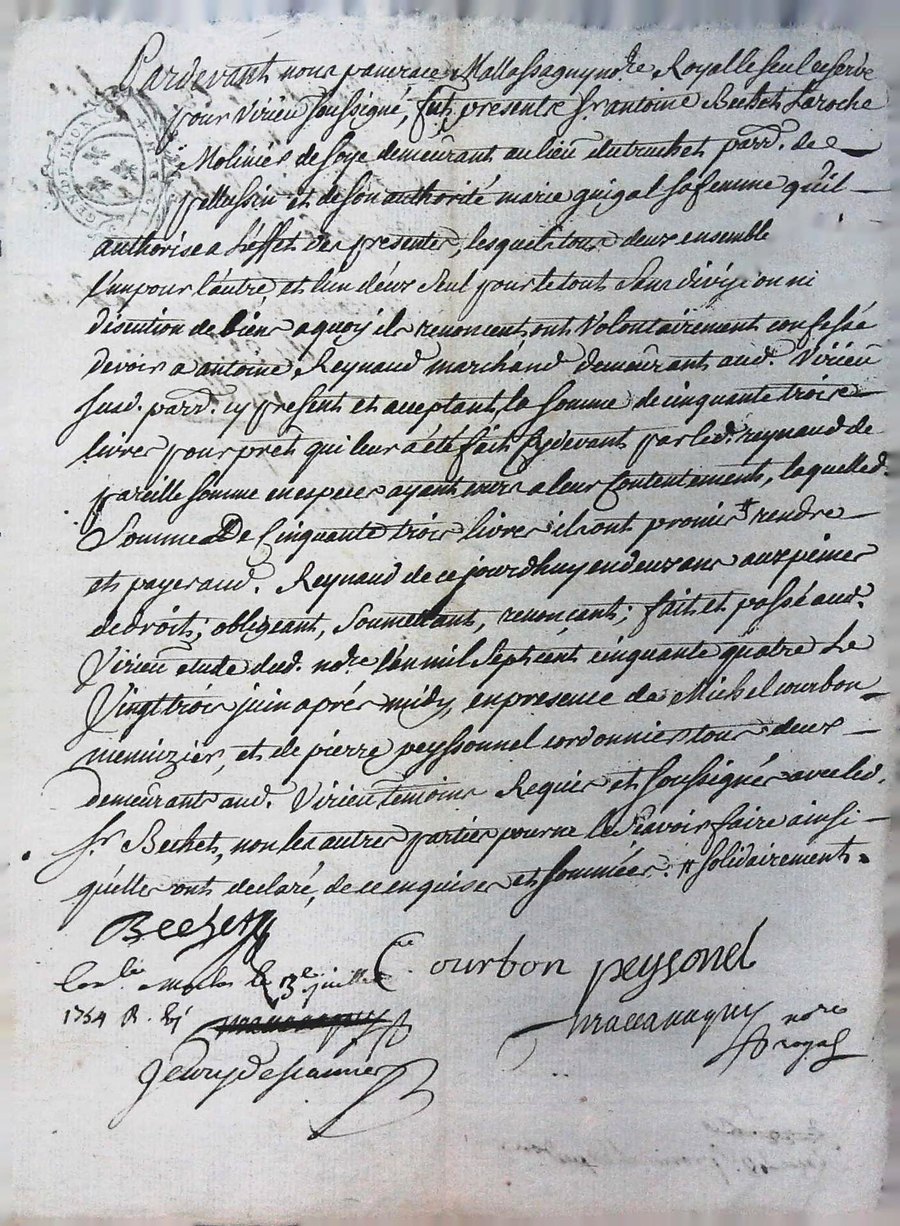 Pardevant nous pancrace Mallassagny no.re Royal le seul reservé
pour Virieu soussigné, fut present s.r antoine Bechet Laroche
Molinier de soye demeurant au lieu du truchet parr. de
pellussin et de son authorité marie guigal sa femme qu'il
authorise a l'effet des presentes, lesquels tous deux ensemble
l'un pour l'autre, et l'un d'eux seul pour le tout sans divizion ni
discution de biens a quoy ils renoncent, ont Volontairement confessé
devoir a antoine Reynaud marchand demeurant aud. Virieu
susd. parr. cy present et acceptant, la somme de cinquante trois
livres pour pret qui leur a été fait cydevant par led. reynaud de
pareille somme en especes ayant cours a leur Contentement, laquelle d.
Somme De Cinquante trois livres ils ont promis # rendre
et payer aud. Reynaud de ce jourdhuy en deux ans aux peines
de droits; obligeant, Soumettant, renonçant; fait et passé aud.
Virieu etude dud. no.re l'an mil sept cent cinquante quatre Le
Vingt trois juin aprés midy, en presence de Michel courbon
menuzier, et de pierre peyssonnel cordonnier tous deux
demeurants aud. Virieu temoins Requis et soussignés avec led.
s.r Bechet, non les autres parties pour ne le sçavoir faire ainsi
qu'elles ont declaré, de ce enquises et sommées. # solidairement.
Bechet
Courbon peysonel
le 3.e juillet
1754 R.
mallassagny no.re
royal